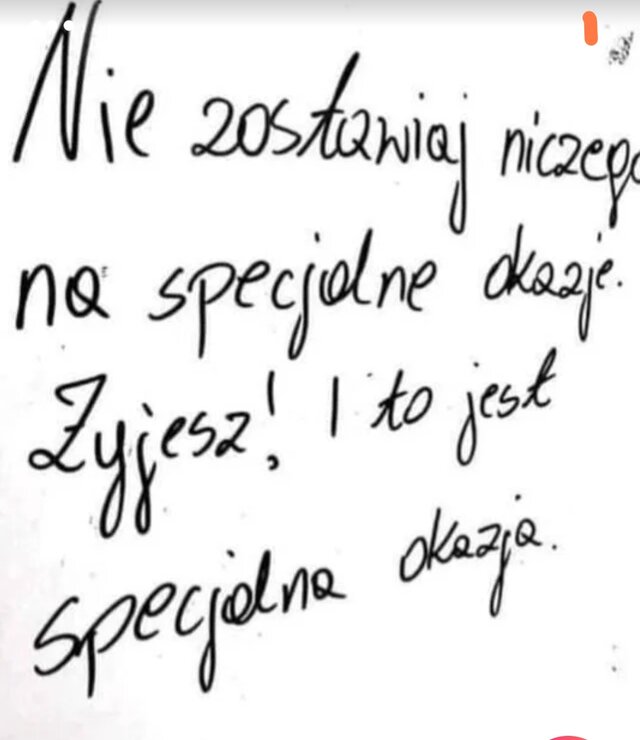 Nie zostawiaj niczego
na specjalne okazje.
Żyjesz! I to jest
specjalna okazja.